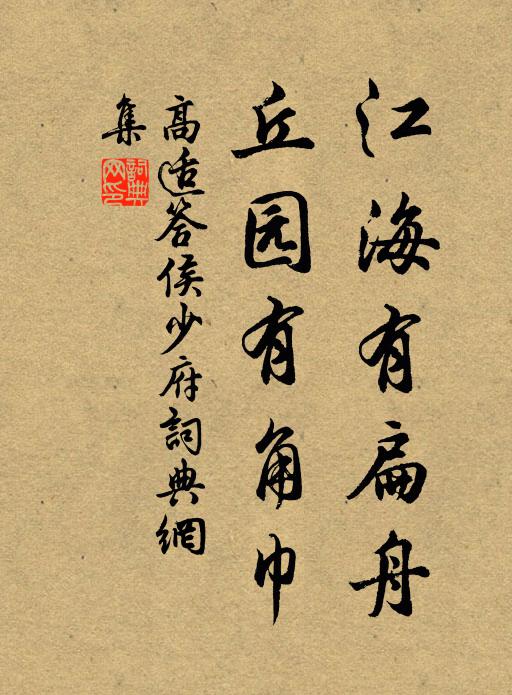 江海有扁舟
丘园有角巾
高适答侯少府詞典網
集
詞典网印